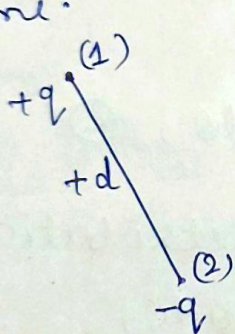 (1)
+q
+d
(2)
-q